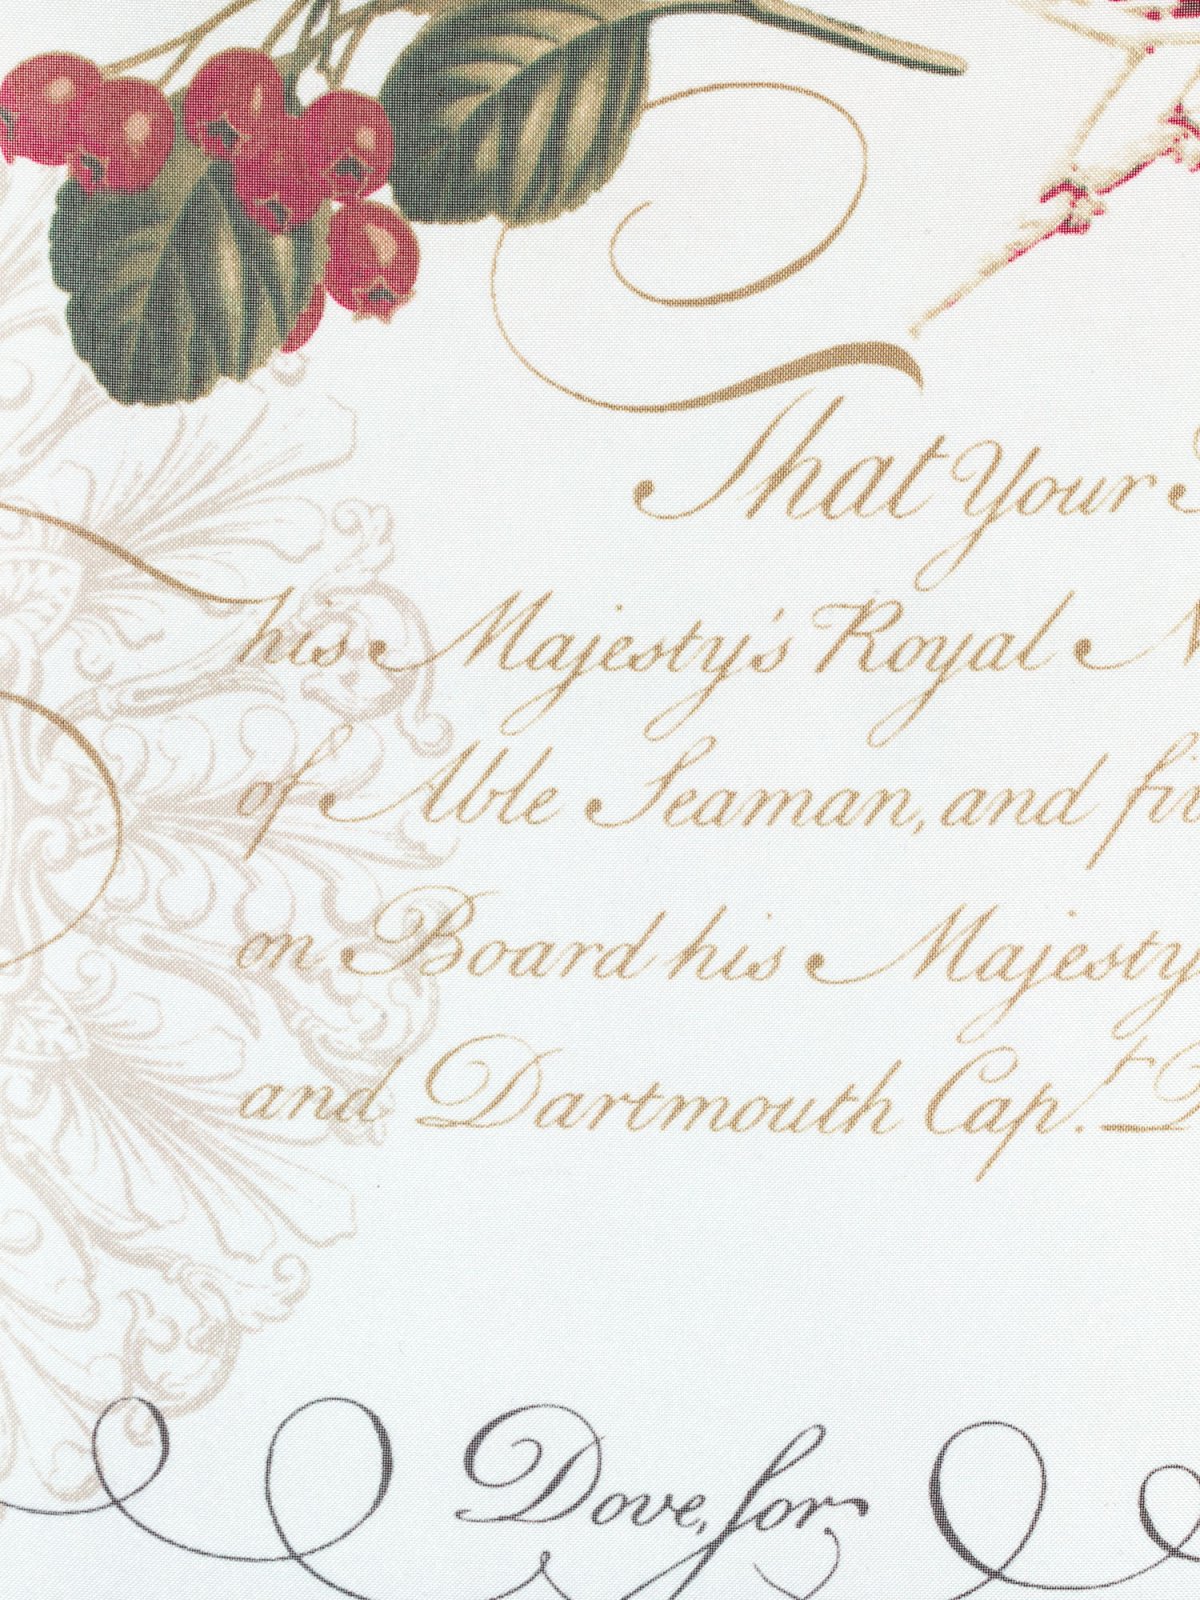 That Your
his Majesty's Royal
of Able Seaman, and
on Board his Majesty
and Dartmouth Cap.t
Dove, for